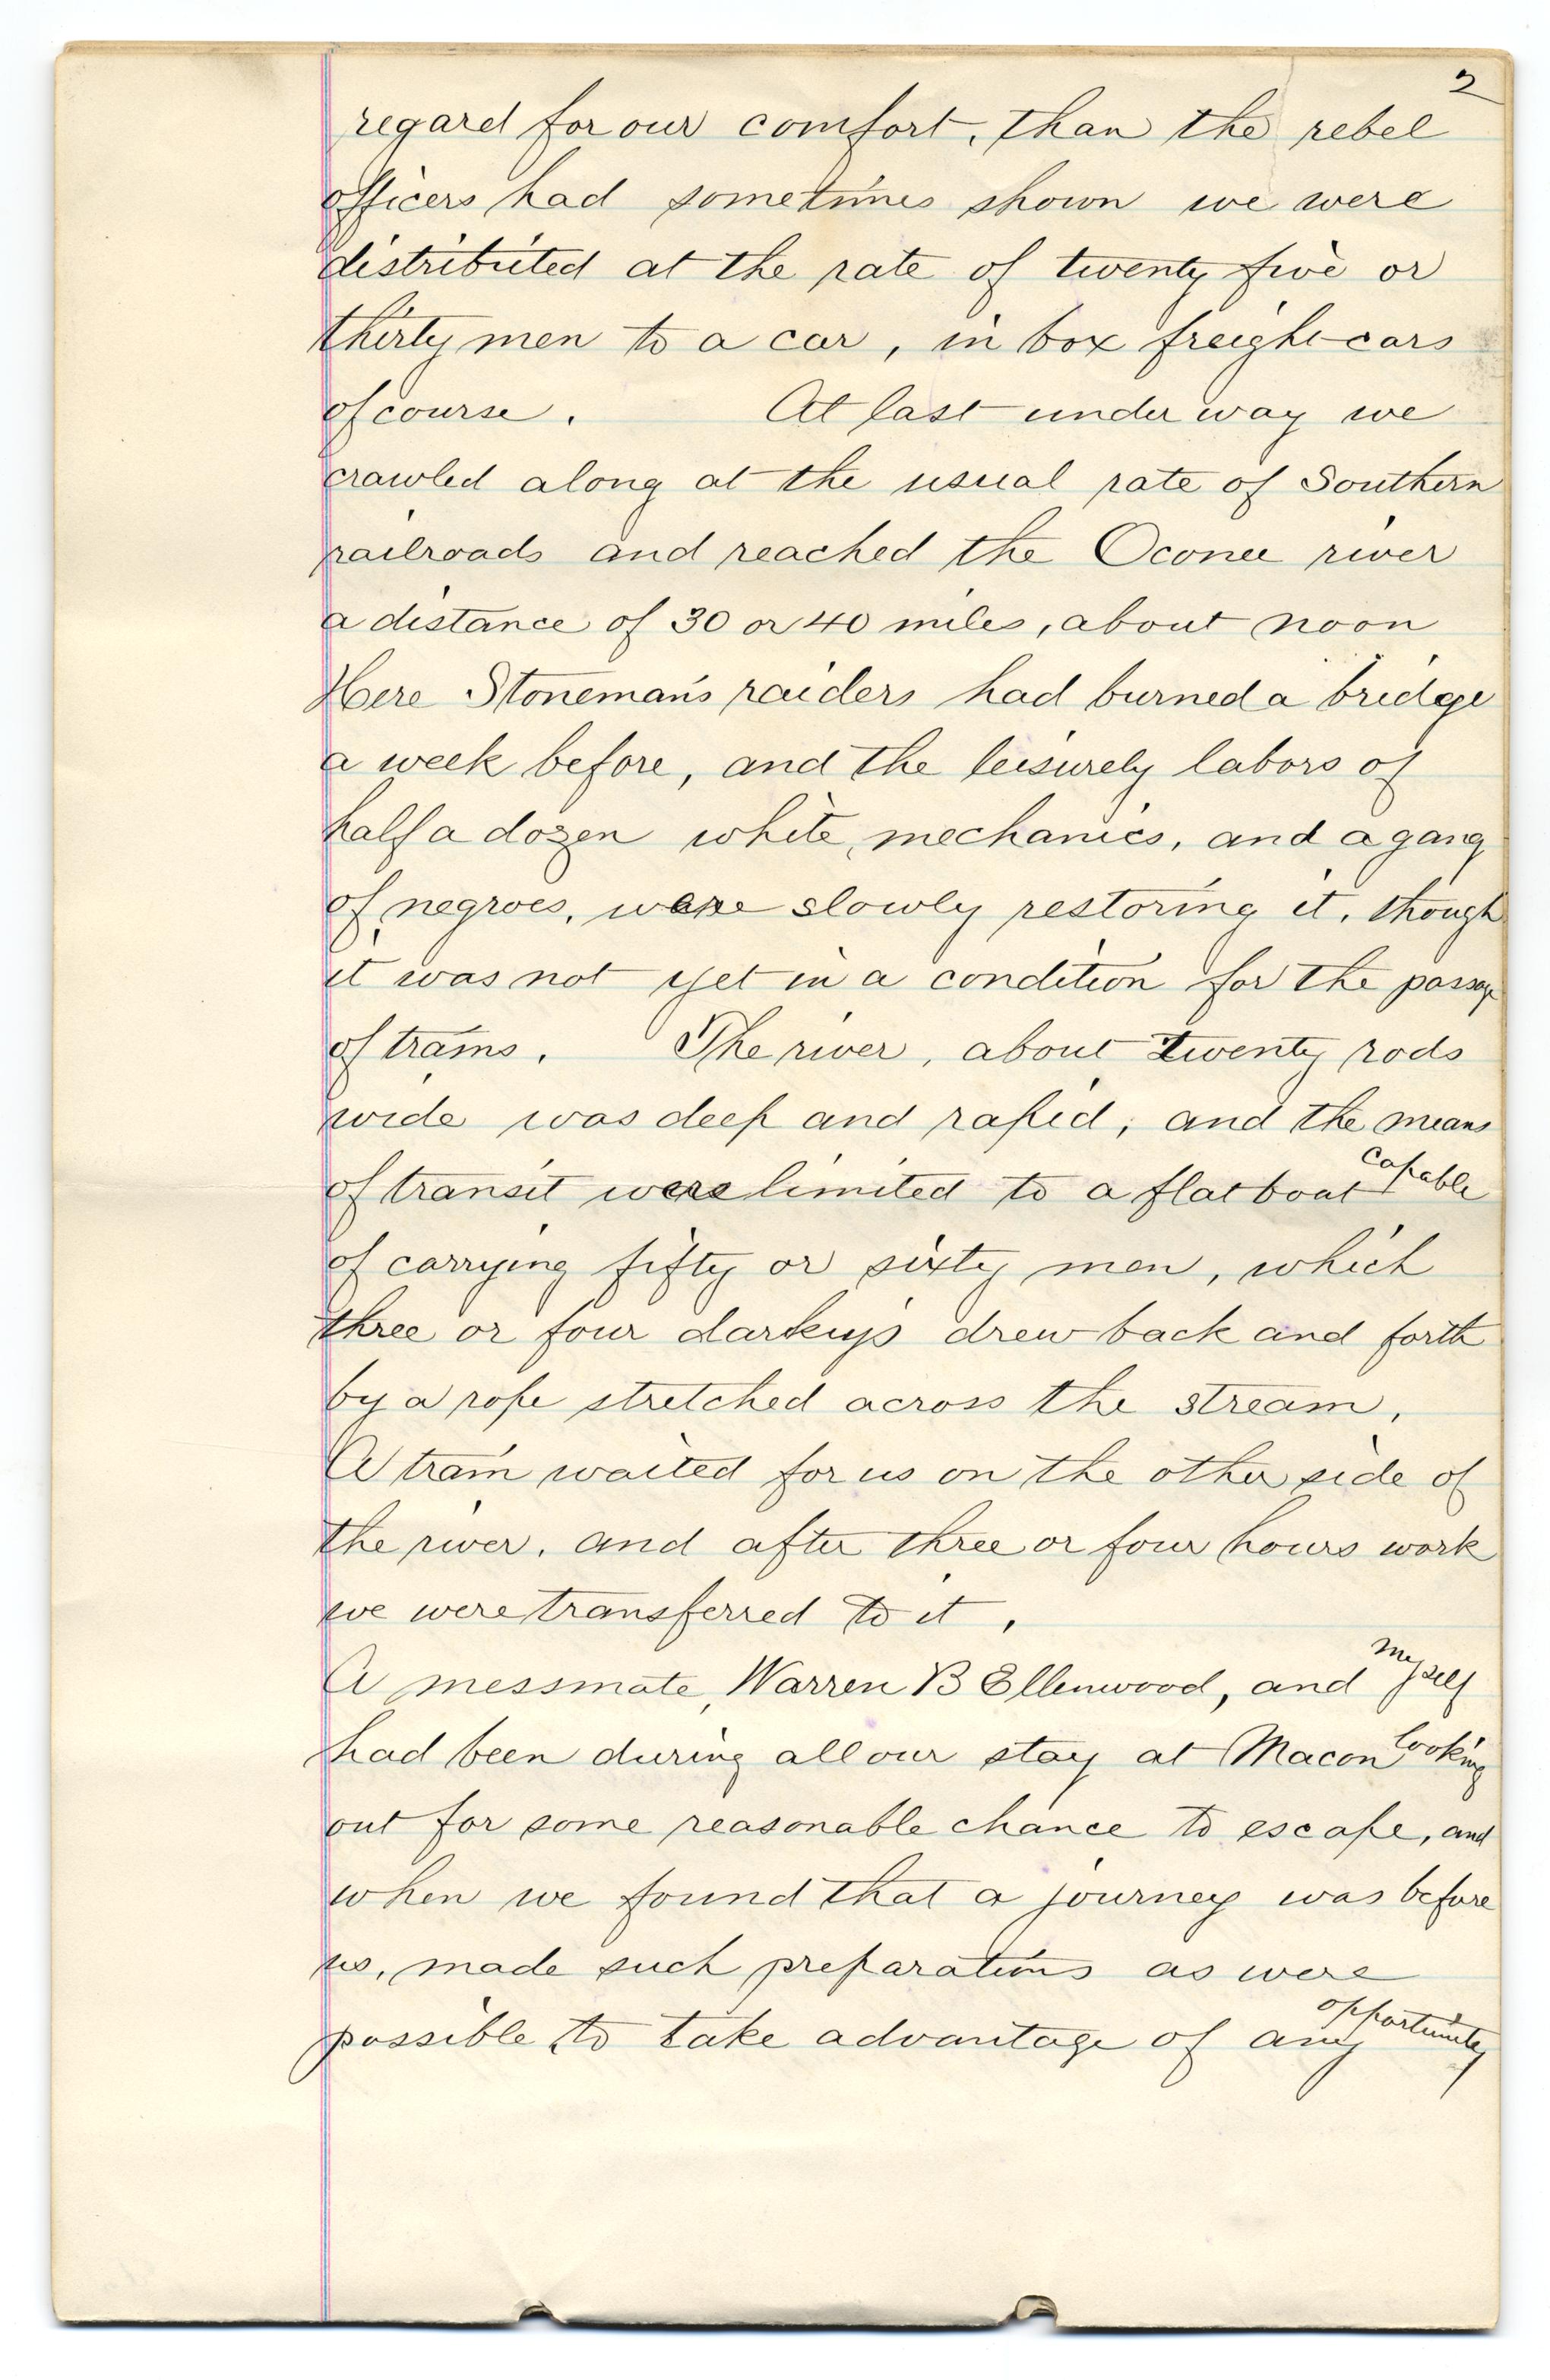 2
regard for our comfort, than the rebel
officers had sometimes shown we were
distributed at the rate of twenty five or
thirty men to a car, in box freight cars
of course. At last under way we
crawled along at the usual rate of Southern
railroads and reached the Oconee river
a distance of 30 or 40 miles, about noon
Here Stoneman's raiders had burned a bridge
a week before, and the leisurely labors of
half a dozen white, mechanics, and a gang
of negroes, were slowly restoring it, though
it was not yet in a condition for the passage
of trains. The river, about twenty rods
wide was deep and rapid, and the means
of transit were limited to a flat boat capable
of carrying fifty or sixty men, which
three or four darkeys drew back and forth
by a rope stretched across the stream.
A train waited for us on the other side of
the river, and after three or four hours work
we were transferred to it.
A messmate, Warren B Ellenwood, and myself
had been during all our stay at Macon looking
out for some reasonable chance to escape, and
when we found that a journey was before
us, made such preparations as were
possible to take advantage of any opportunity